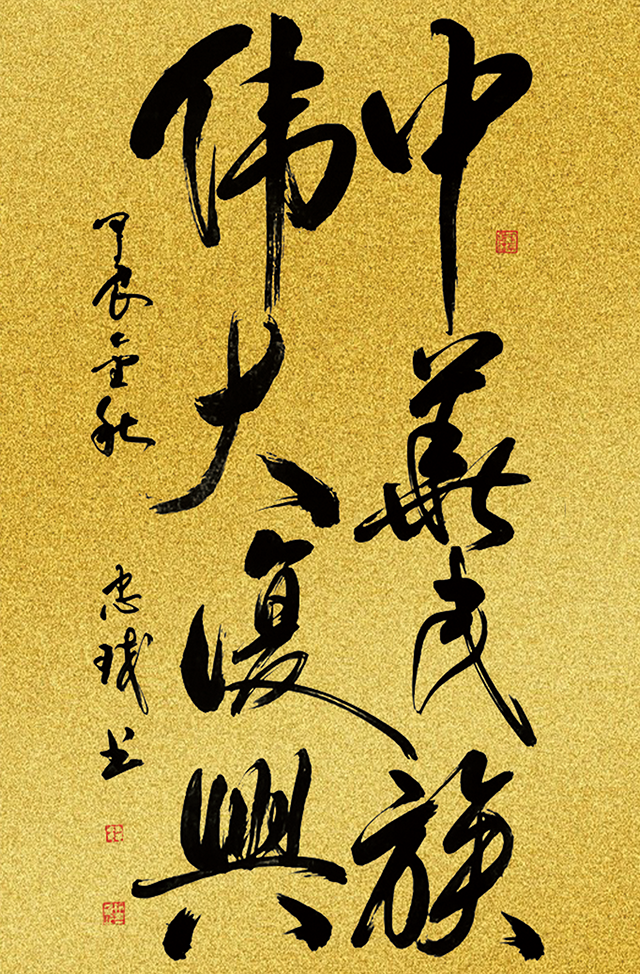 中華民族
伟大復興
甲辰金秋
忠 书